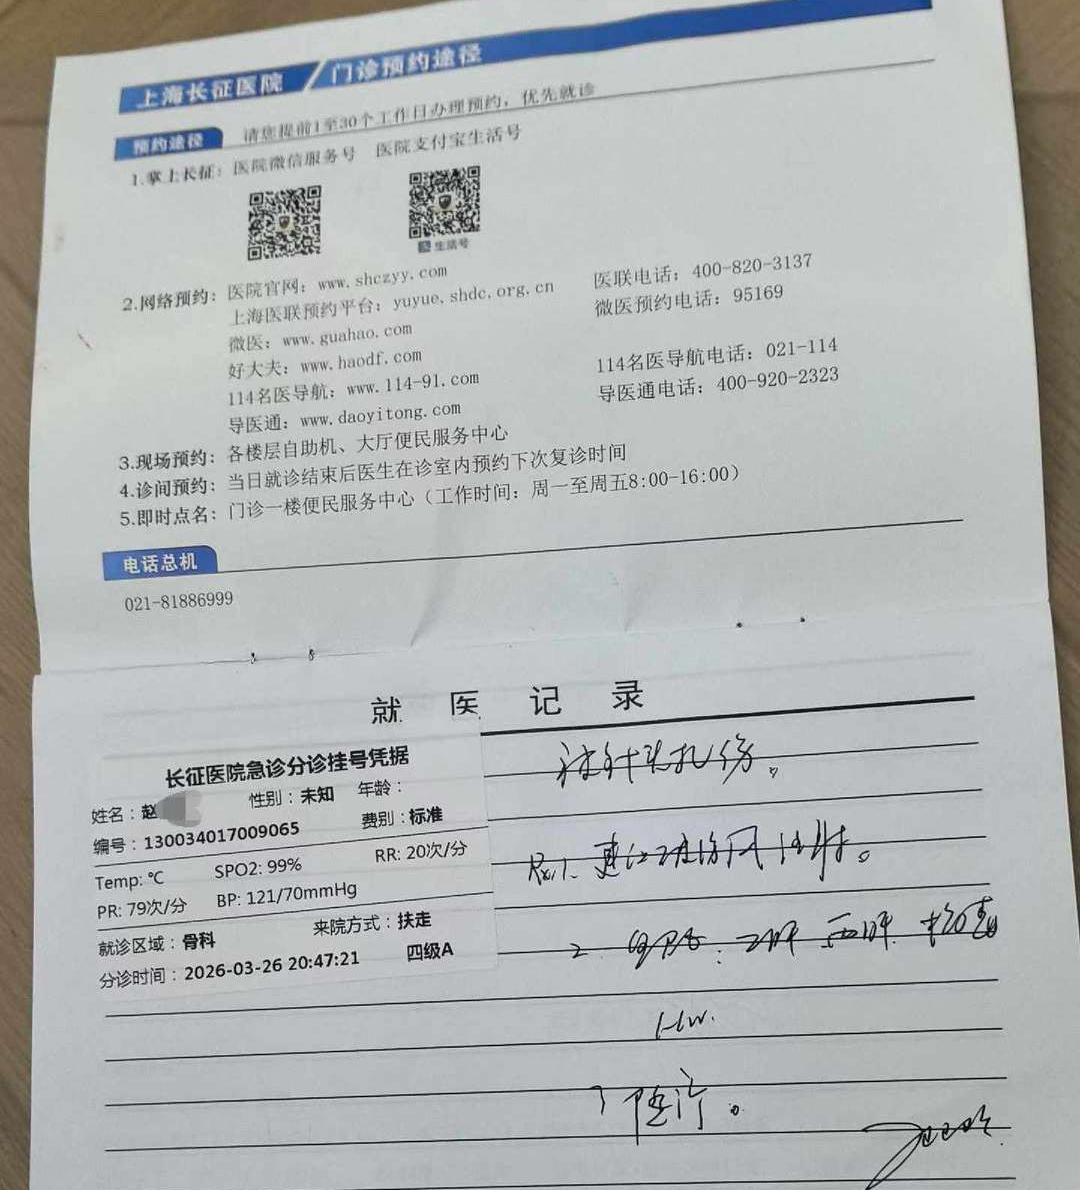 上海长征医院 / 门诊预约途径
预约途径 请您提前1至30个工作日办理预约，优先就诊
1.掌上长征：医院微信服务号 医院支付宝生活号
生活号
2.网络预约：医院官网：www.shczyy.com 医联电话：400-820-3137
上海医联预约平台：yuyue.shdc.org.cn 微医预约电话：95169
微医：www.guahao.com
好大夫：www.haodf.com 114名医导航电话：021-114
114名医导航：www.114-91.com 导医通电话：400-920-2323
导医通：www.daoyitong.com
3.现场预约：各楼层自助机、大厅便民服务中心
4.诊间预约：当日就诊结束后医生在诊室内预约下次复诊时间
5.即时点名：门诊一楼便民服务中心（工作时间：周一至周五8:00-16:00）
电话总机
021-81886999
就医记录
长征医院急诊分诊挂号凭据
姓名：赵 性别：未知 年龄：
编号：130034017009065 费别：标准
Temp: ℃ SPO2: 99% RR: 20次/分
PR: 79次/分 BP: 121/70mmHg
就诊区域：骨科 来院方式：扶走
分诊时间：2026-03-26 20:47:21 四级A
被针头扎伤。
建议破伤风注射。
2. 乙肝 丙肝 梅毒
HIV.
随诊。